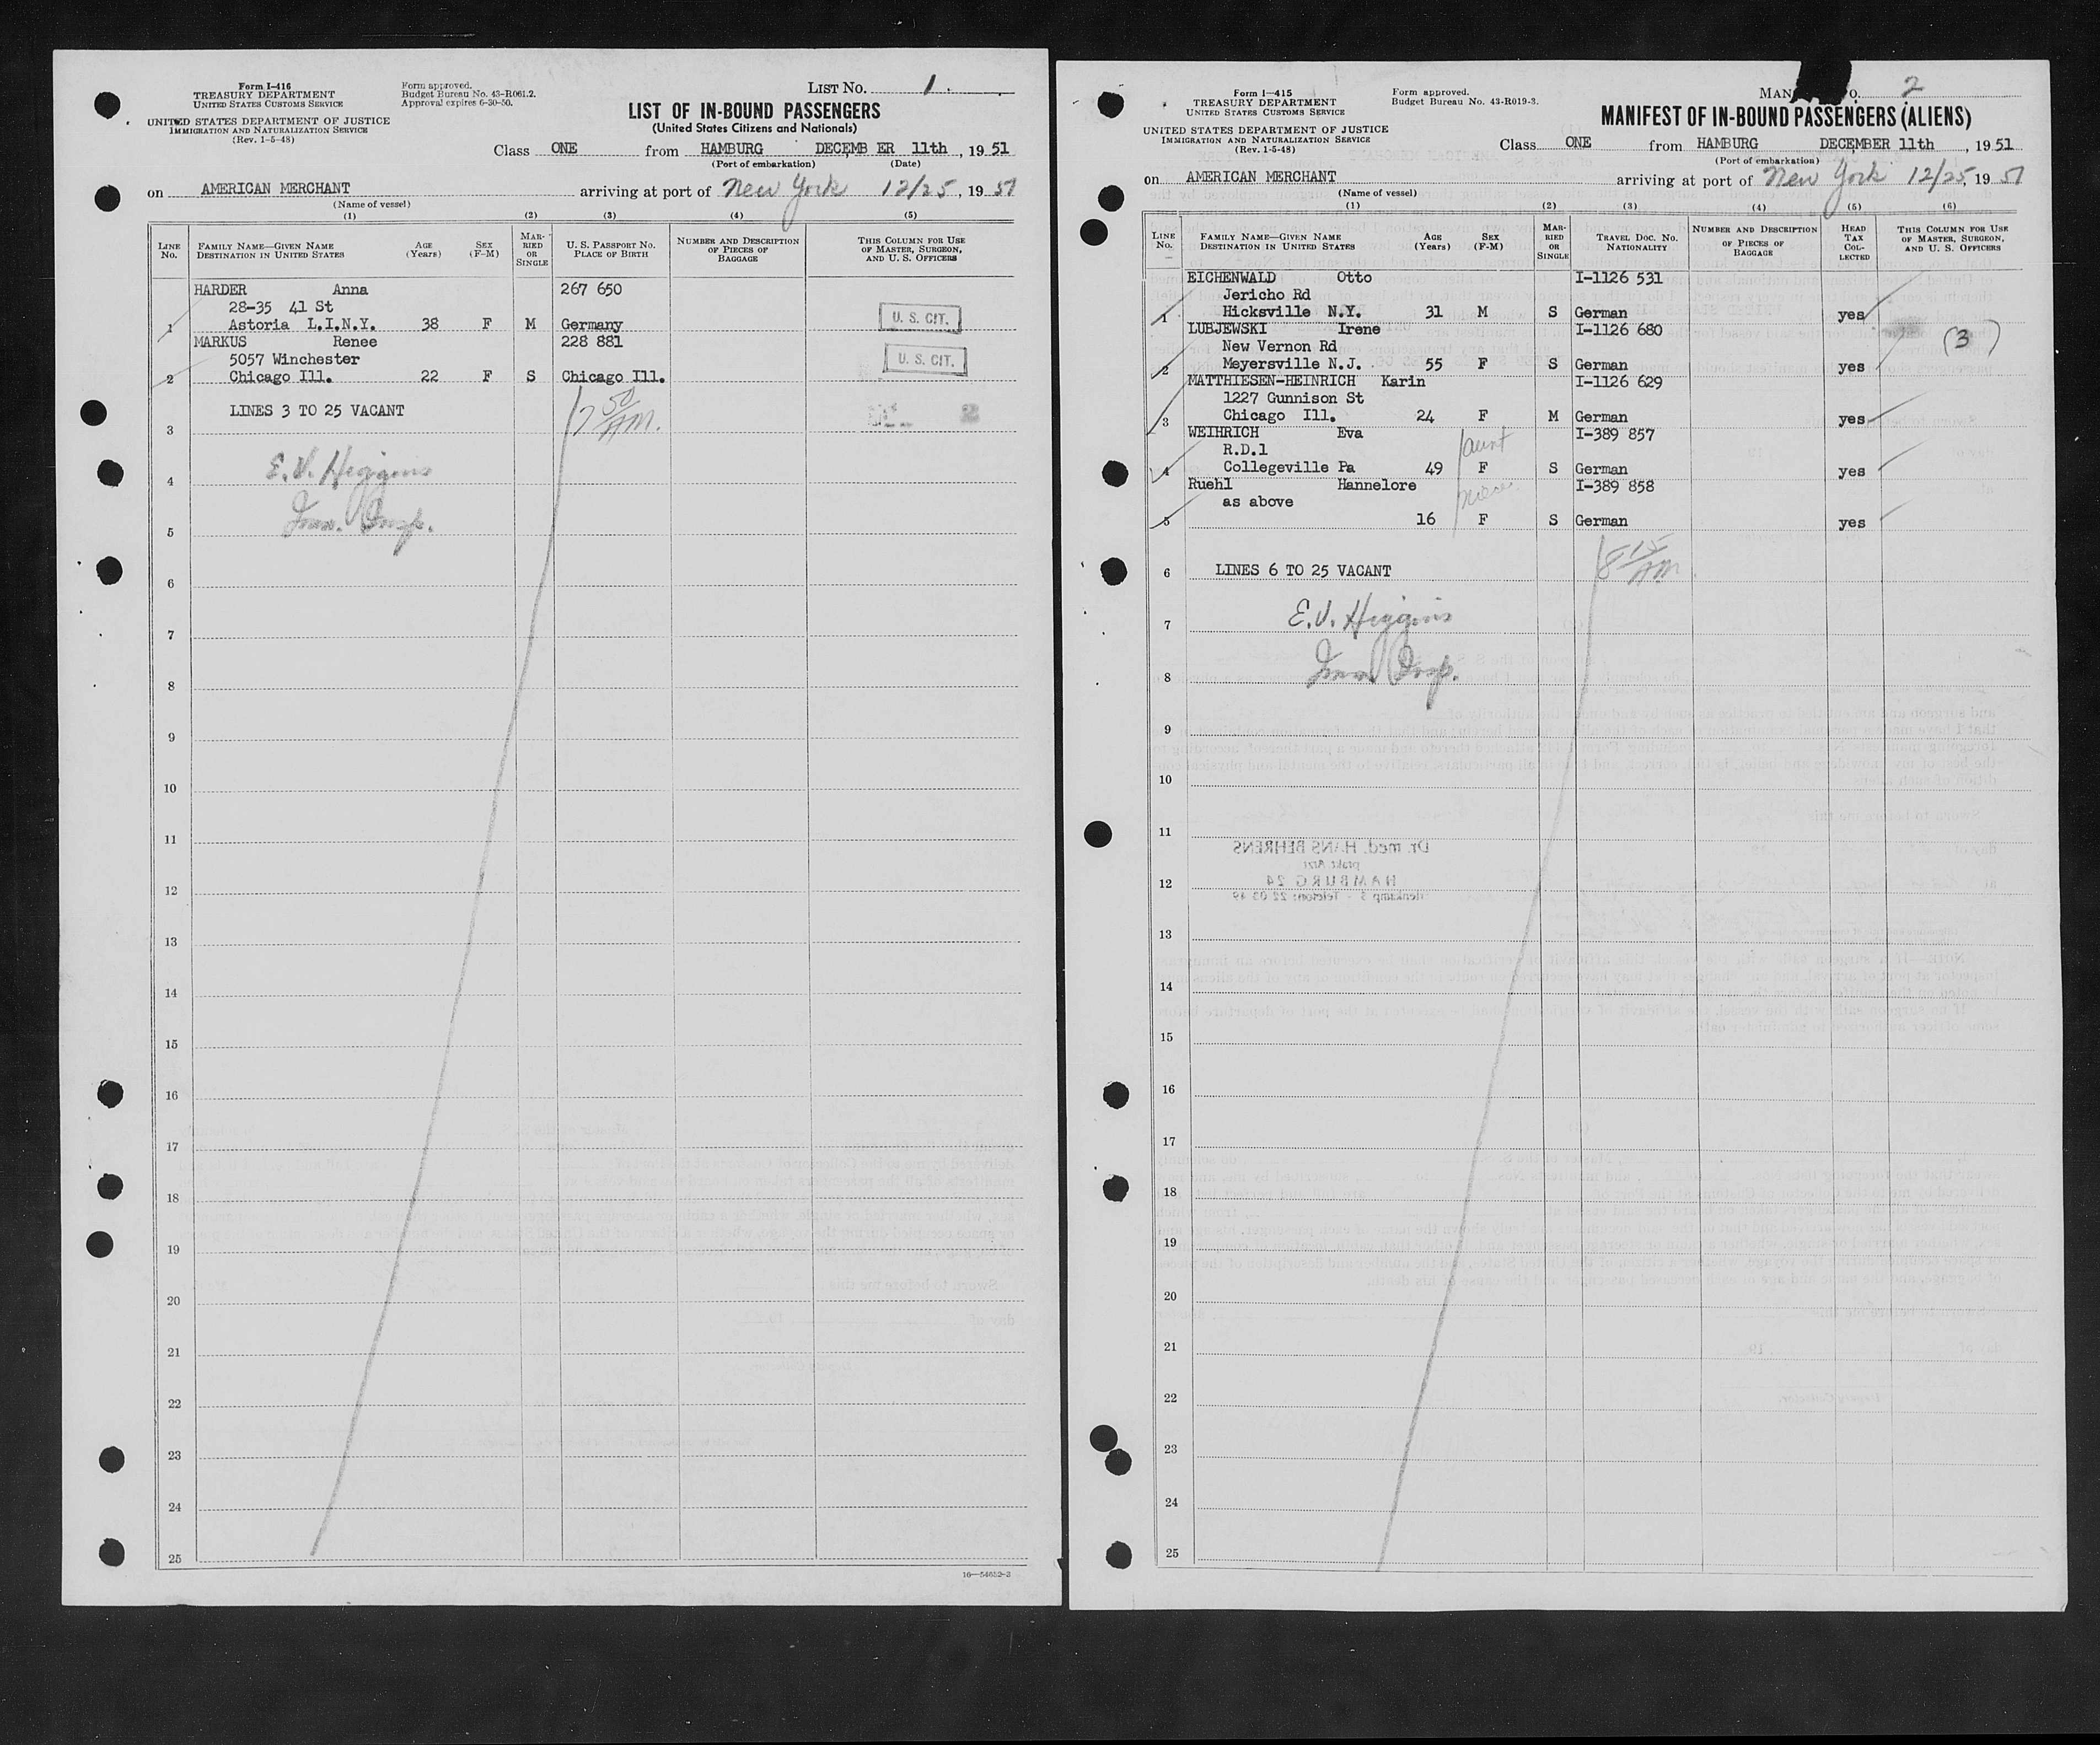 Form I-416
TREASURY DEPARTMENT
UNITED STATES CUSTOMS SERVICE
UNITED STATES DEPARTMENT OF JUSTICE
IMMIGRATION AND NATURALIZATION SERVICE
(Rev. 1-5-48)
Form approved.
Budget Bureau No. 43-R061.2.
Approval expires 6-30-50.
LIST NO. 1
LIST OF IN-BOUND PASSENGERS
(United States Citizens and Nationals)
Class ONE from HAMBURG DECEMB ER 11th, 1951
(Port of embarkation) (Date)
on AMERICAN MERCHANT arriving at port of New York 12/25, 1951
(Name of vessel)
(1) (2) (3) (4) (5)
LINE No. FAMILY NAME—GIVEN NAME DESTINATION IN UNITED STATES AGE (Years) SEX (F-M) MARRIED OR SINGLE U. S. PASSPORT NO. PLACE OF BIRTH NUMBER AND DESCRIPTION OF PIECES OF BAGGAGE THIS COLUMN FOR USE OF MASTER, SURGEON, AND U. S. OFFICERS
HARDER Anna 267 650
28-35 41 St
1 Astoria L.I.N.Y. 38 F M Germany U. S. CIT.
MARKUS Renee 228 881
5057 Winchester
2 Chicago Ill. 22 F S Chicago Ill. U. S. CIT.
LINES 3 TO 25 VACANT 7 50 AM.
3
E.V. Higgins
4
Imm. Insp.
5
6
7
8
9
10
11
12
13
14
15
16
17
18
19
20
21
22
23
24
25
16—54652-3
Form I-415
TREASURY DEPARTMENT
UNITED STATES CUSTOMS SERVICE
UNITED STATES DEPARTMENT OF JUSTICE
IMMIGRATION AND NATURALIZATION SERVICE
(Rev. 1-5-48)
Form approved.
Budget Bureau No. 43-R019-3.
MAN O. 2
MANIFEST OF IN-BOUND PASSENGERS (ALIENS)
Class ONE from HAMBURG DECEMBER 11th, 1951
(Port of embarkation)
on AMERICAN MERCHANT arriving at port of New York 12/25, 1951
(Name of vessel)
(1) (2) (3) (4) (5) (6)
LINE No. FAMILY NAME—GIVEN NAME DESTINATION IN UNITED STATES AGE (Years) SEX (F-M) MARRIED OR SINGLE TRAVEL DOC. NO. NATIONALITY NUMBER AND DESCRIPTION OF PIECES OF BAGGAGE HEAD TAX COLLECTED THIS COLUMN FOR USE OF MASTER, SURGEON, AND U. S. OFFICERS
EICHENWALD Otto I-1126 531
Jericho Rd
1 Hicksville N.Y. 31 M S German yes
LUBJEWSKI Irene I-1126 680
New Vernon Rd (3)
2 Meyersville N.J. 55 F S German yes
MATTHIESEN-HEINRICH Karin I-1126 629
1227 Gunnison St
3 Chicago Ill. 24 F M German yes
WEIHRICH Eva I-389 857
R.D.1 aunt
4 Collegeville Pa 49 F S German yes
Ruehl Hannelore I-389 858
as above niece
5 16 F S German yes
6 LINES 6 TO 25 VACANT 8 15 AM
7 E.V. Higgins
8 Imm. Insp.
9
10
11
Dr. med. HANS BEHRENS
prakt. Arzt
12 HAMBURG 24
13
14
15
16
17
18
19
20
21
22
23
24
25